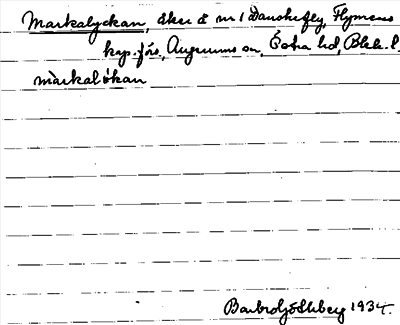 Markalyckan, åker å nr 1 Danskefly, Flymens
kap.förs, Augerums sn, Östra hd, Blek. l.
màrkalökan
Barbro Söhlberg 1934.